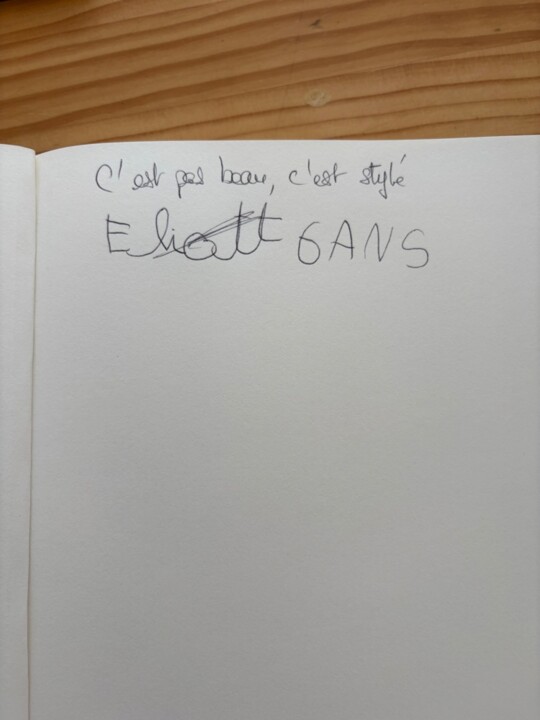 C'est pas beau, c'est stylé
Eliott 6 ANS